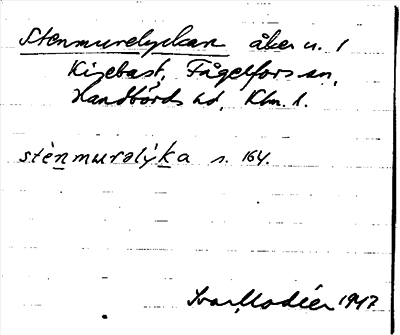 Stenmurelyckan åker n. 1
Kisebast, Fågelfors sn,
Handbörds hd, Klm. l.
stènmuralỳka s. 164.
Ivar Modéer 1947